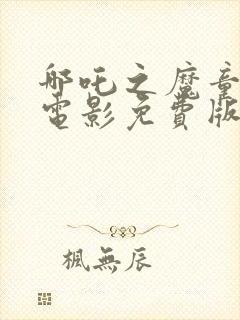 哪吒之魔童
電影免費版
楓無辰